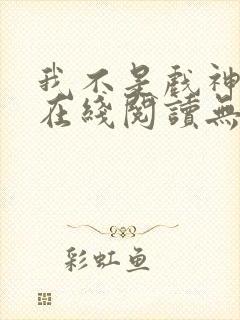 我不是戏神
在綫閱讀無
彩虹鱼